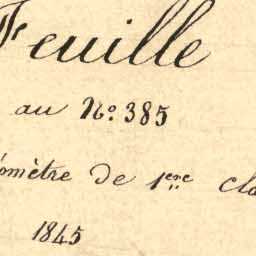 Feuille
au No. 385
omètre de 1ere cla
1845